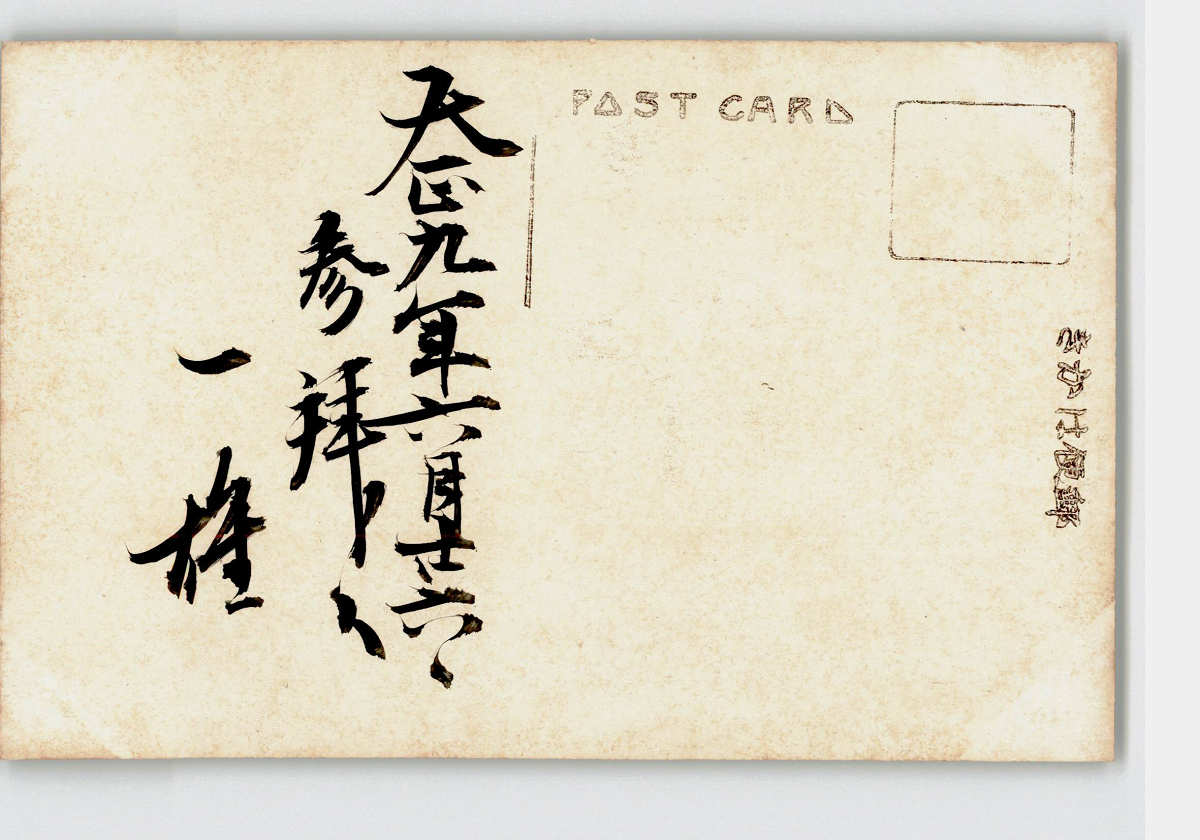 POST CARD
郵便はかき
大正九年六月廿六
参拝
一雄